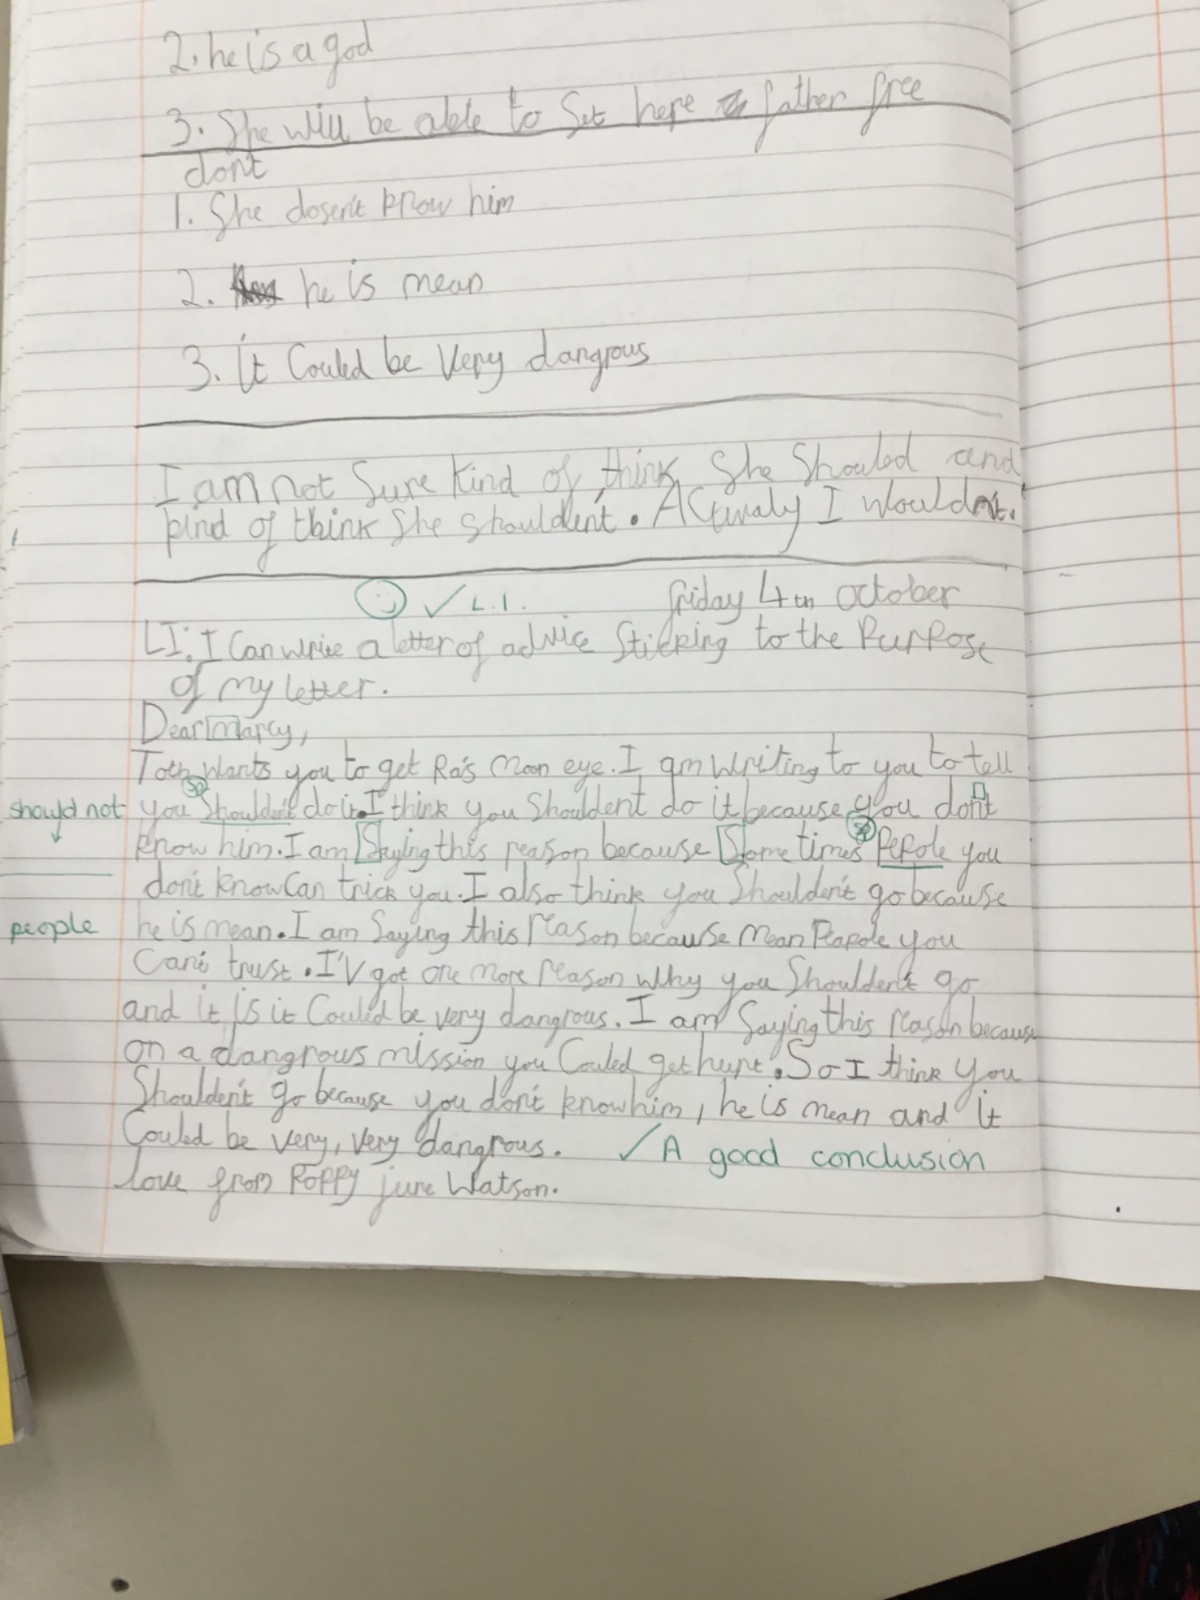 2. he is a god
3. She will be able to Set here father free
dont
1. She dosen't know him
2. he is mean
3. It Could be Very dangrous
I am not Sure kind of think She Should and
kind of think She shouldent. Acturaly I wouldn't.
✓ L.I. friday 4th october
LI: I Can write a letter of advice Sticking to the Purpose
of my letter.
Dear Marcy,
Toth wants you to get Ra's Moon eye. I am writing to you to tell
should not you Shouldent do it. I think you Shouldent do it because you don't
know him. I am Saying this reason because Some times Pepole you
don't know Can trick you. I also think you Shouldent go because
people he is mean. I am Saying this reason because mean Peapole you
Can't trust. I'V got one more reason why you Shouldent go
and it is it Could be very dangrous. I am Saying this reason because
on a dangrous mission you Could get hurt. So I think you
Shouldent go because you don't know him, he is mean and it
Could be very, very dangrous. ✓ A good conclusion
love from Poppy june Watson.